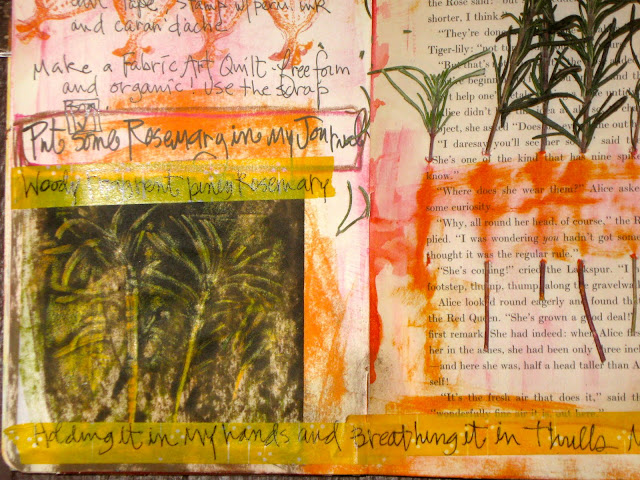 and caran d'ache
Make a Fabric Art Quilt. free form
and organic! Use the scrap
Put some Rosemary in my Journal
Woody, piney Rosemary
Holding it in my hands and Breathing it in Thrills
the Rose said: "but
shorter, I think
"They're
Tiger-lily: "not
"But that's
begin
help one
Alice didn't
ject, she asked "Does
"I daresay you'll see her said
"She's one of the kind that has nine
know."
"Where does she wear them?" Alice aske
some curiosity.
"Why, all round her head, of course," the R
plied. "I was wondering you hadn't got som
thought it was the regular rule."
"She's coming!" cried the Larkspur. "I
footstep, thump, thump, along the gravel-wal
Alice looked round eagerly and found tha
the Red Queen. "She's grown a good deal!"
first remark. She had indeed: when Alice firs
her in the ashes, she had been only three inc
—and here she was, half a head taller than A
self!
"It's the fresh air that does it," said th
"wonderfully fine air it is, out here."